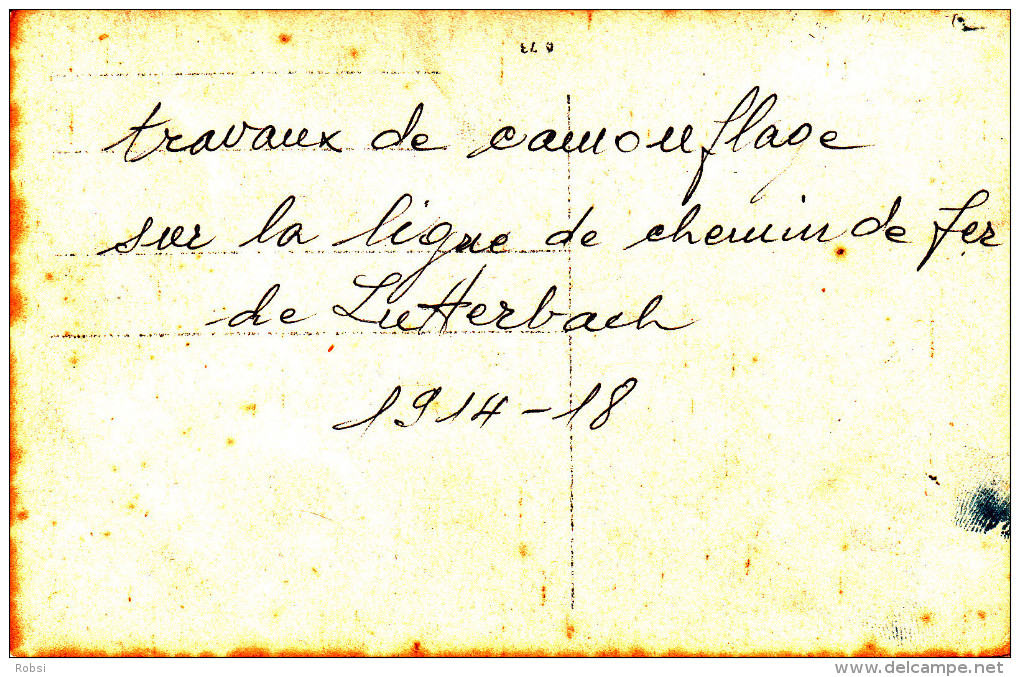 travaux de camouflage
sur la ligne de chemin de fer
de Lutterbach
1914-18
Robsi
www.delcampe.net